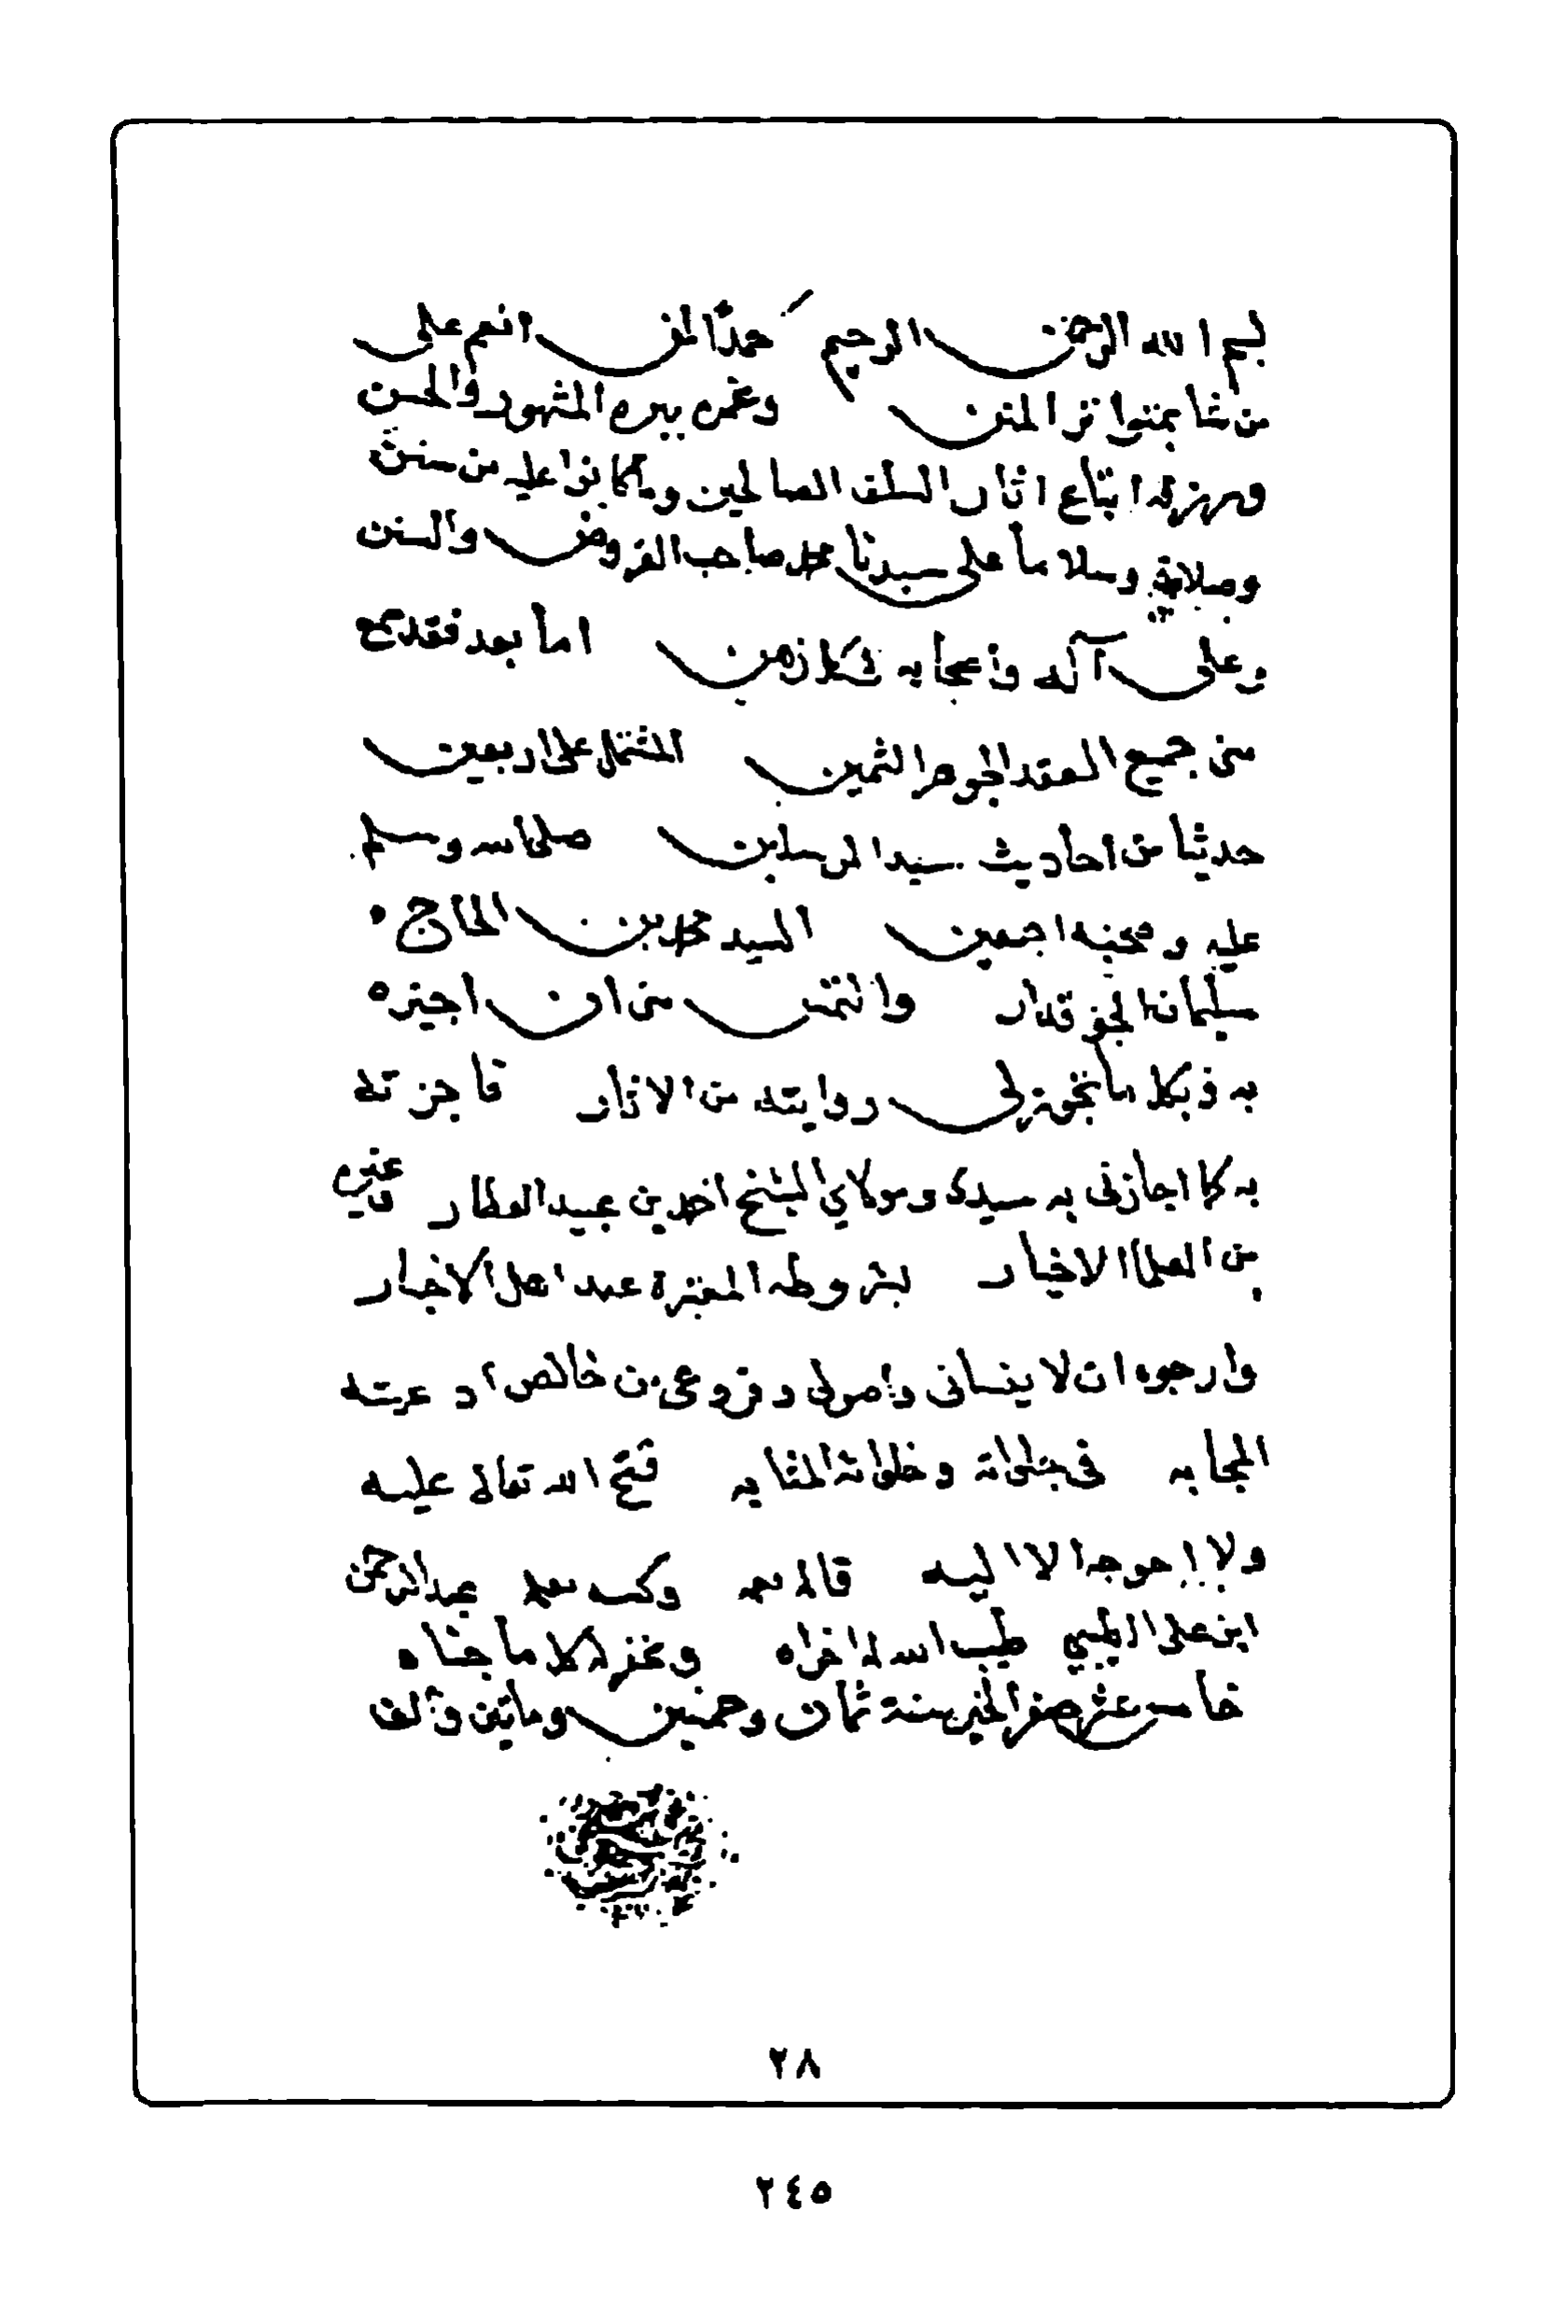 بسم الله الرحمن الرحيم حمدًا لمن انعم على
من شا بمتواتر المنن وغمره ببره المشهور والحسن
ورزقه اتباع اثار السلف الصالحين وما كانوا عليه من سنن
وصلاة وسلاما على سيدنا محمد صاحب الفروض والسنن
وعلى آله واصحابه في كل زمن اما بعد فقد سمع
مني جميع العقد الجوهر الثمين المشتمل على اربعين
حديثا من احاديث سيد المرسلين صلى الله وسلم
عليه وصحبه اجمعين السيد محمد بن الحاج
سليمان الجوقدار والتمس مني ان اجيزه
به وبكل ما تجوز لي روايته من الاثار فاجزته
به كما اجازني به سيدي ومولاي الشيخ احمد بن عبيد العطار وغيره
من العلما الاخيار بشروطه المعتبرة عند اهل الاخبار
وارجوه ان لا ينساني واصولي وفروعي من خالص ادعيته
المجابه في جلواته وخلواته المثابه فتح الله تعالى عليه
ولا احوجه الا اليه قاله بفمه وكتبه بقلمه عبد الرحمن
ابن علي الطيبي طيب الله له اخراه وغفر له كل ما جناه
خامس عشر صفر الخير سنة ثمان وخمسين ومايتين والف
٢٨
٢٤٥